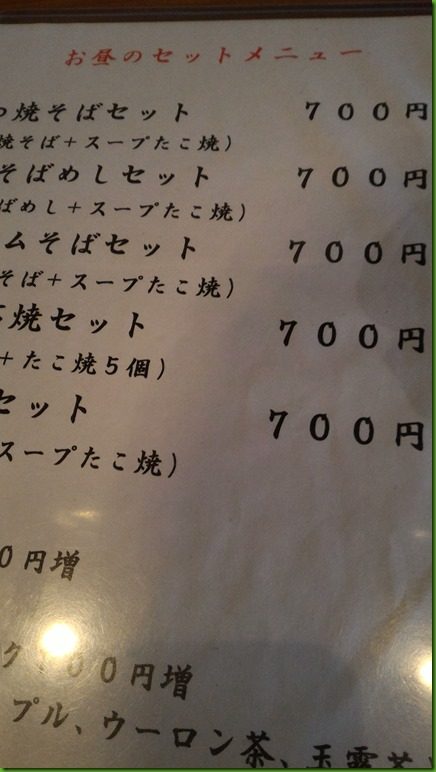 お昼のセットメニュー
つ焼そばセット ７００円
焼そば＋スープたこ焼）
そばめしセット ７００円
ばめし＋スープたこ焼）
ムそばセット ７００円
そば＋スープたこ焼）
焼セット ７００円
＋たこ焼５個）
セット ７００円
スープたこ焼）
０円増
ク１００円増
プル、ウーロン茶、玉露茶